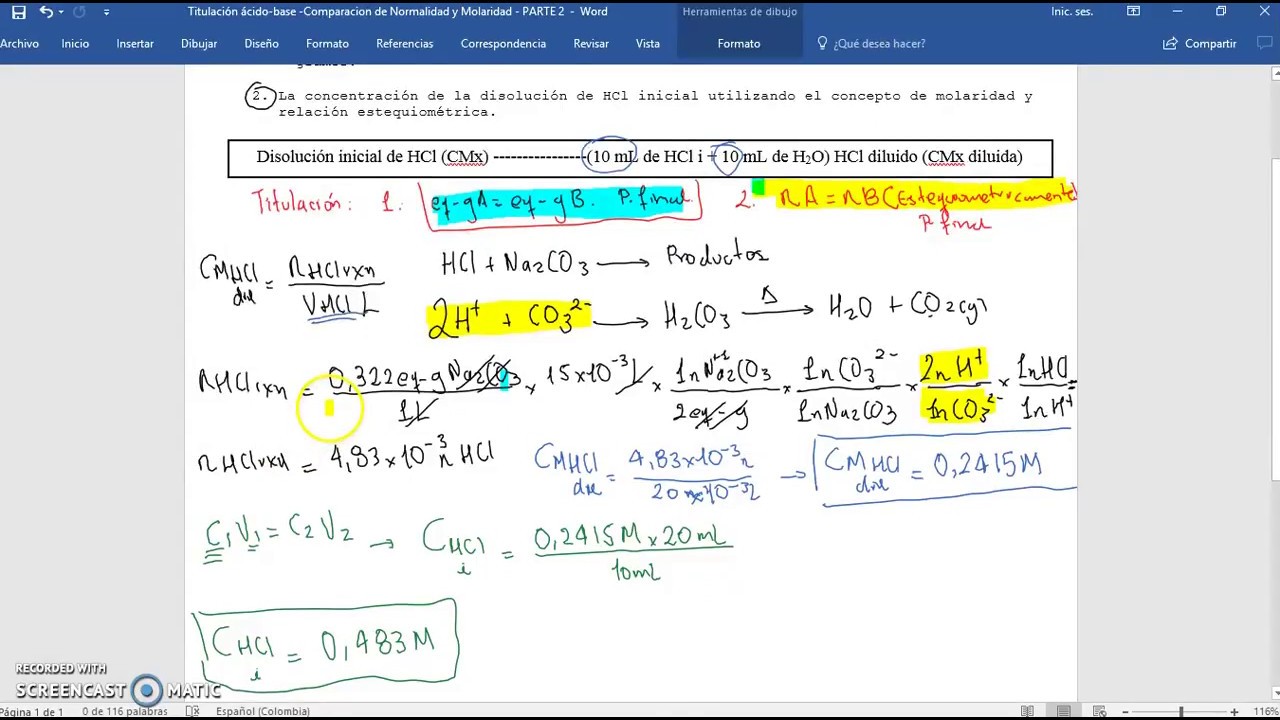 Titulación ácido-base -Comparacion de Normalidad y Molaridad - PARTE 2 - Word
Herramientas de dibujo
Inic. ses.
Archivo Inicio Insertar Dibujar Diseño Formato Referencias Correspondencia Revisar Vista Formato ¿Qué desea hacer? Compartir
2. La concentración de la disolución de HCl inicial utilizando el concepto de molaridad y
relación estequiométrica.
Disolución inicial de HCl (CMx) -----------------(10 mL de HCl i + 10 mL de H₂O) HCl diluido (CMx diluida)
Titulación: 1. eq-gA = eq-gB. P. final 2. nA = nB (Estequiometricamente)
P final
CM HCl dil = n HCl rxn / V HCl L
HCl + Na₂CO₃ → Productos
2H⁺ + CO₃²⁻ → H₂CO₃ —Δ→ H₂O + CO₂(g)
n HCl rxn = 0,322 eq-g Na₂CO₃ / 1L × 15×10⁻³ L × 1n Na₂⁺¹CO₃ / 2 eq-g × 1n CO₃²⁻ / 1n Na₂CO₃ × 2n H⁺ / 1n CO₃²⁻ × 1n HCl / 1n H⁺ =
n HCl rxn = 4,83×10⁻³ n HCl
CM HCl dil = 4,83×10⁻³ n / 20×10⁻³ L → CM HCl dil = 0,2415 M
C₁V₁ = C₂V₂ → C HCl i = 0,2415 M × 20 mL / 10 mL
C HCl i = 0,483 M
RECORDED WITH
SCREENCAST MATIC
Página 1 de 1 0 de 116 palabras Español (Colombia) 116%